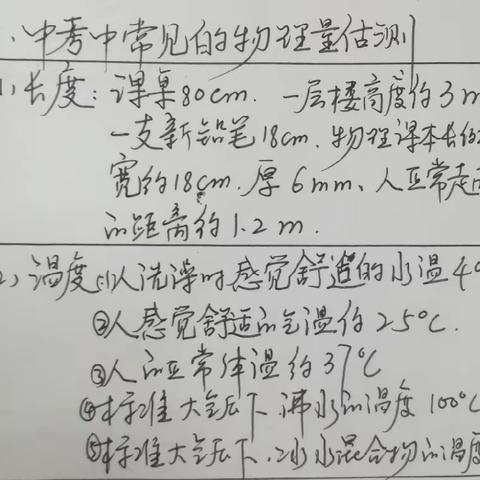 、中考中常见的物理量估测
1)长度:课桌80cm. 一层楼高度约3m
一支新铅笔18cm.物理课本长约
宽约18cm.厚6mm、人正常走
的距离约1.2m.
2)温度:①人洗澡时感觉舒适的水温40
②人感觉舒适的气温约25°C.
③人的正常体温约37°C
④标准大气压下沸水的温度100°C
⑤标准大气压下.冰水混合物的温度